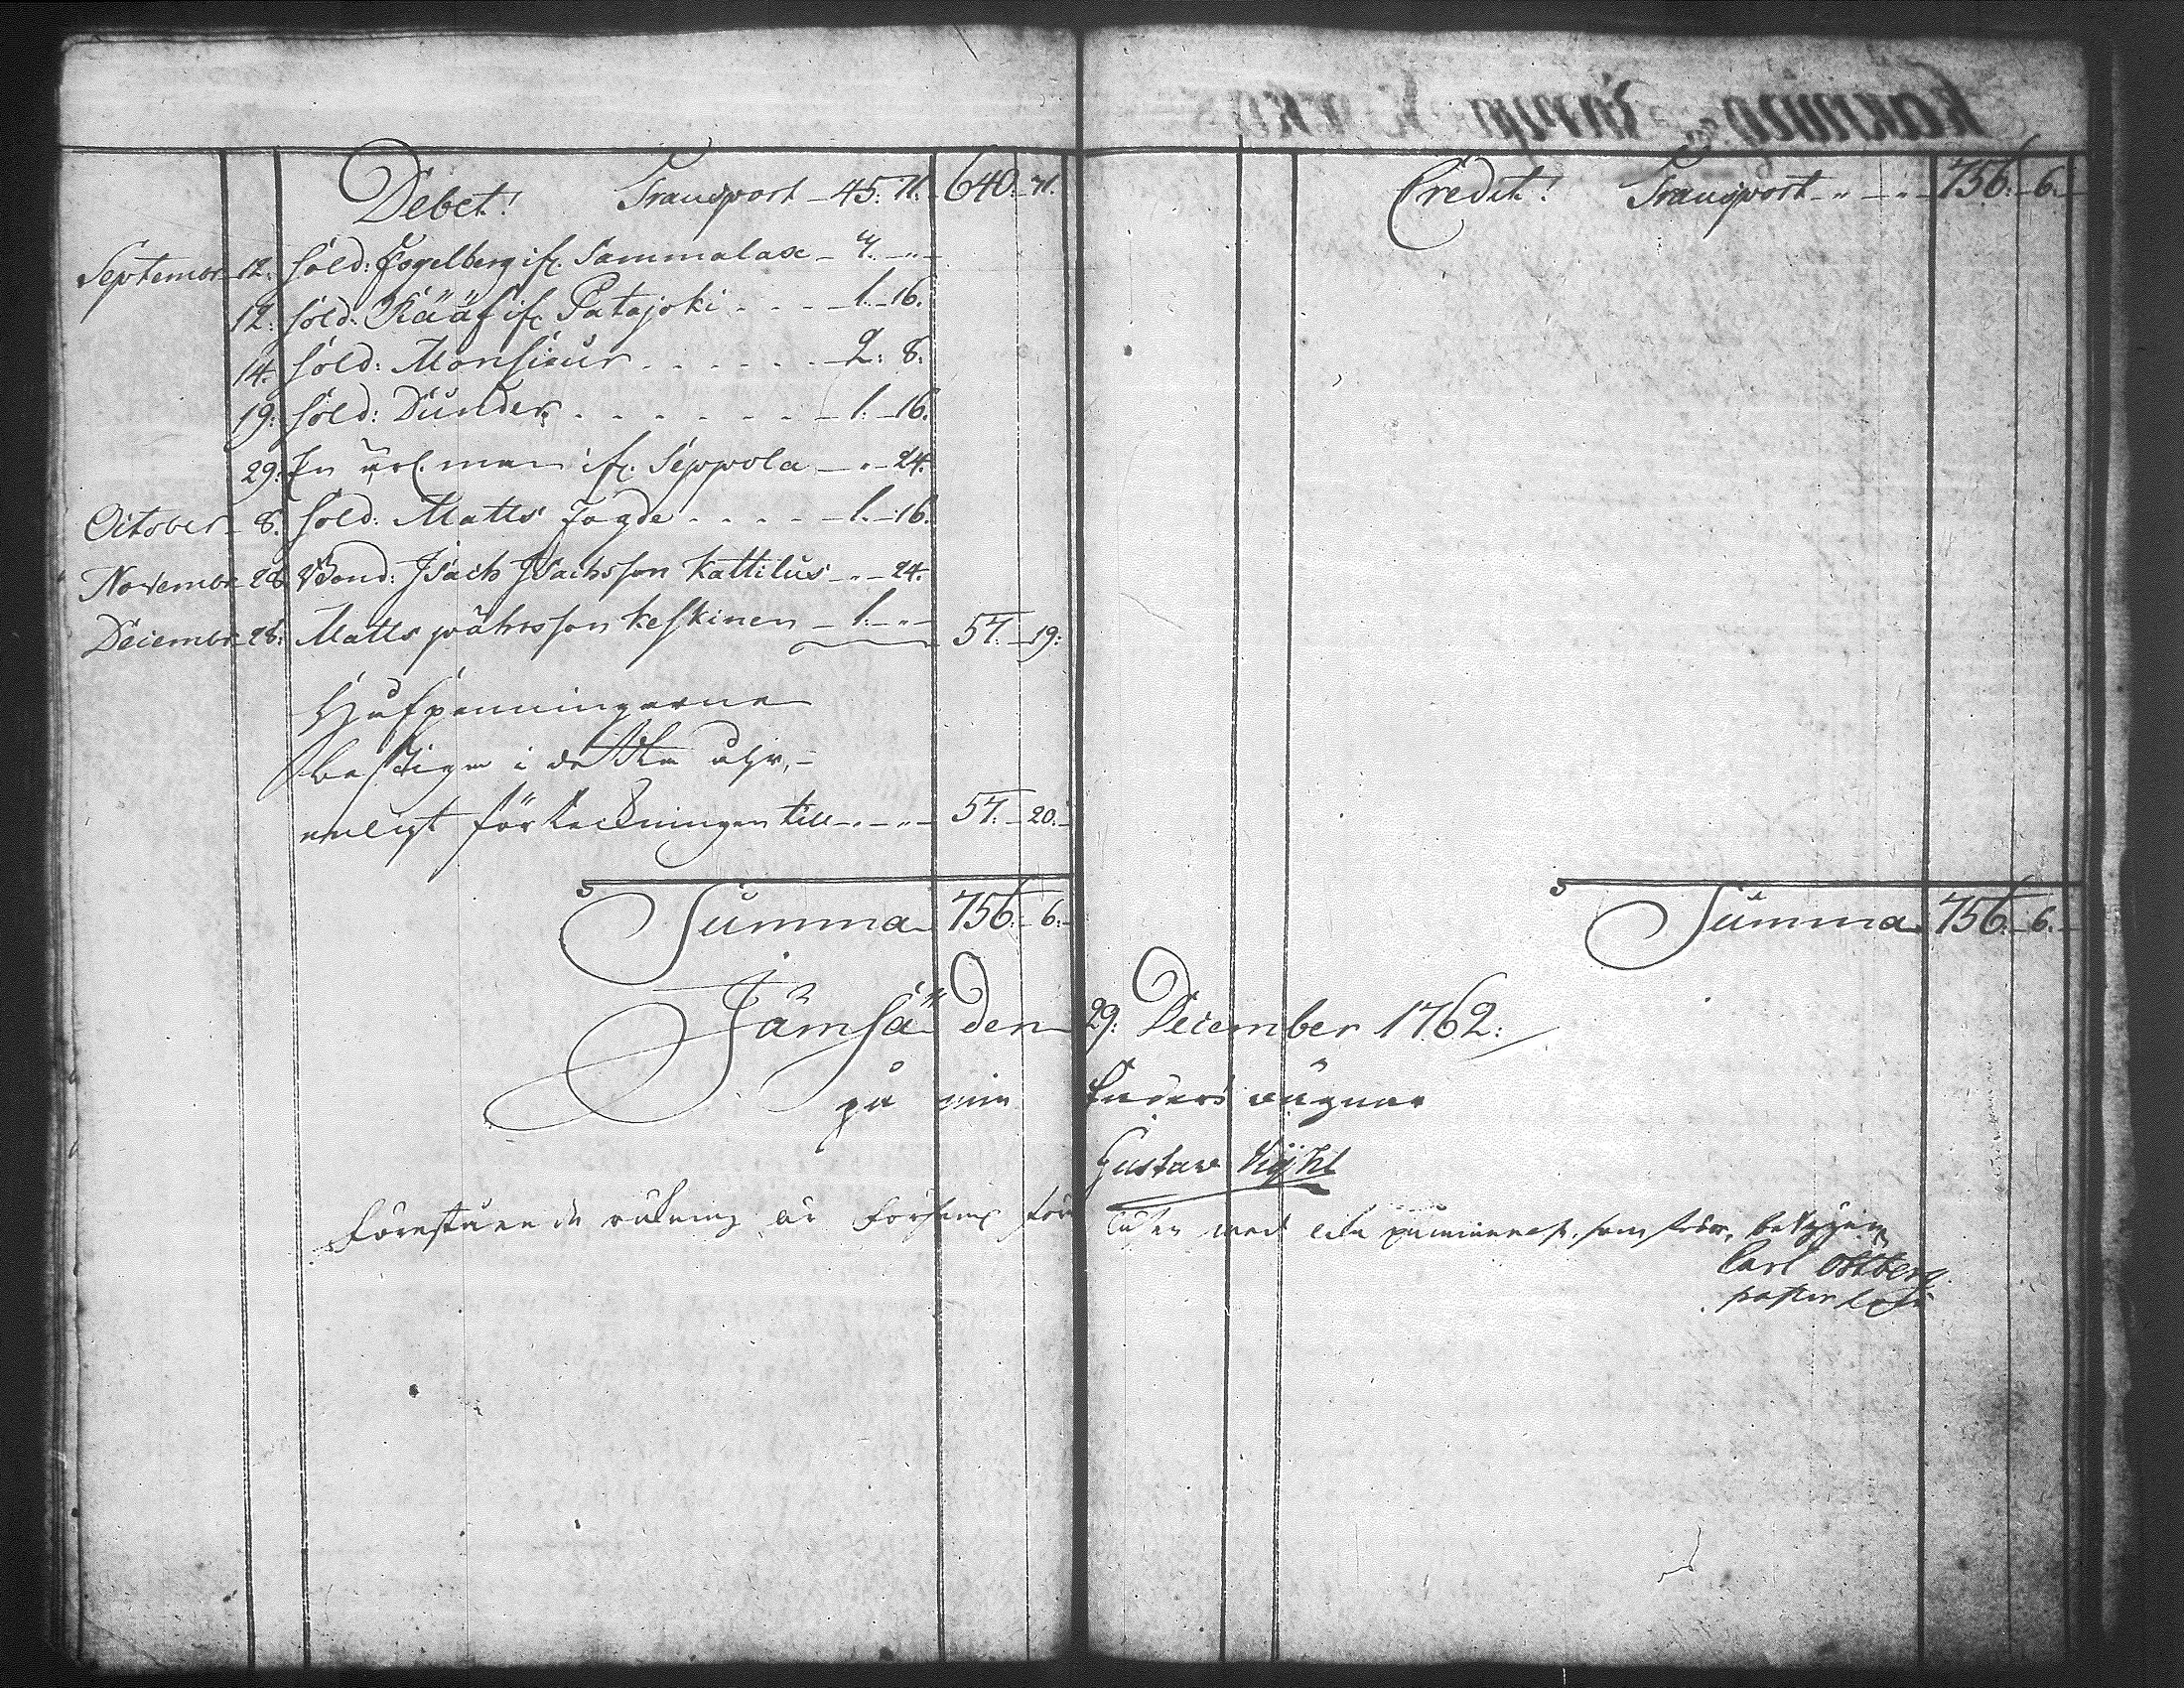 Debet! Transport 45: 11. 640: 11.
Septembr 12. Sold: Fogelberg if. Sammalax 4. „
12: Sold: Kääf if. Patajoki 1. 16.
14. Sold: Monsieur 2: 8.
19: Sold: Dunder 1. 16.
29: En if. Seppola „ 24.
October 8. Sold: Matts Fogde 1. 16.
Novembr 28 Bond: Isach Isachsson Kattilus „ 24.
Decembr 28: Matts pährsson Keskinen 1. „ 57. 19:
Hufpenningarne
bestiga i detta åhr,
enligt förteckningen till 57. 20.
Summa 756. 6.
Credit! Transport 756. 6.
Summa 756. 6.
Jämsä den 29: December 1762.
på min vägnar
Gustav
Förestående räkning är med som
Carl Östberg